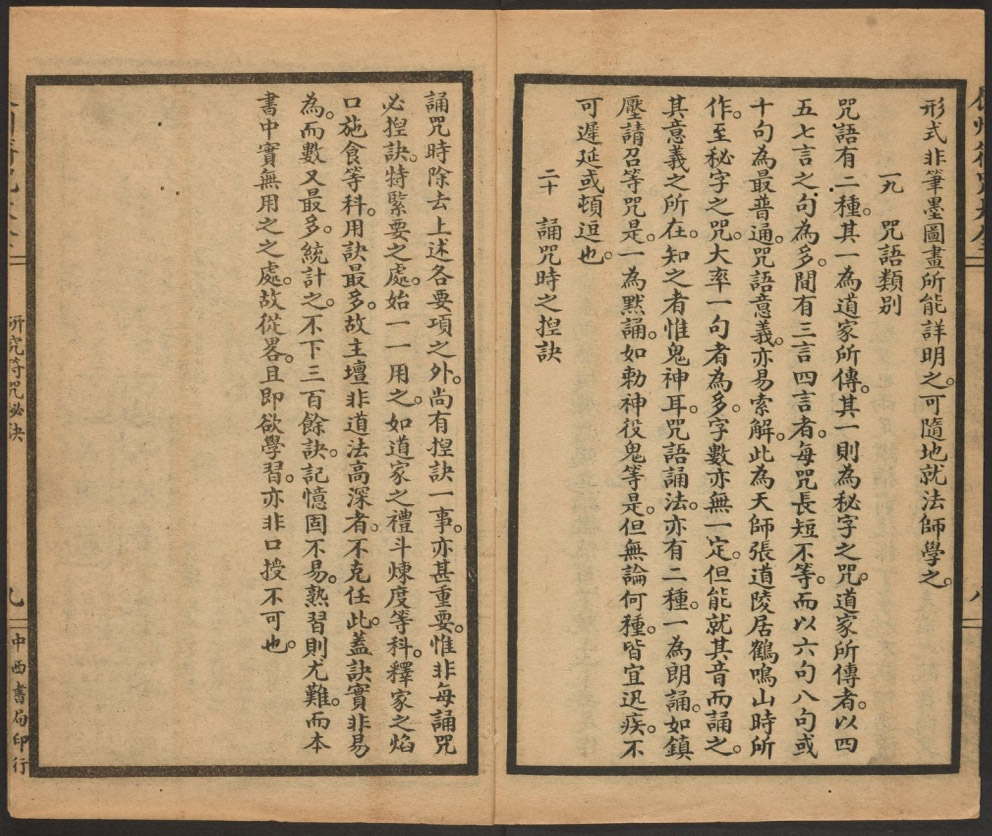 形式非筆墨圖畫所能詳明之。可隨地就法師學之。
一九　咒語類別
咒語有二種。其一為道家所傳。其一則為秘字之咒。道家所傳者。以四
五七言之句為多。間有三言四言者。每咒長短不等。而以六句八句或
十句為最普通。咒語意義。亦易索解。此為天師張道陵居鶴鳴山時所
作。至秘字之咒。大率一句者為多。字數亦無一定。但能就其音而誦之。
其意義之所在。知之者惟鬼神耳。咒語誦法。亦有二種。一為朗誦。如鎮
壓請召等咒是。一為默誦。如勅神役鬼等是。但無論何種。皆宜迅疾。不
可遲延或頓逗也。
二十　誦咒時之揑訣
誦咒時除去上述各要項之外。尚有揑訣一事。亦甚重要。惟非每誦咒
必揑訣。特緊要之處。始一一用之。如道家之禮斗煉度等科。釋家之焰
口施食等科。用訣最多。故主壇非道法高深者。不克任此。蓋訣實非易
為。而數又最多。統計之。不下三百餘訣。記憶固不易。熟習則尤難。而本
書中實無用之之處。故從畧。且即欲學習。亦非口授不可也。
研究符咒秘訣
九
中西書局印行